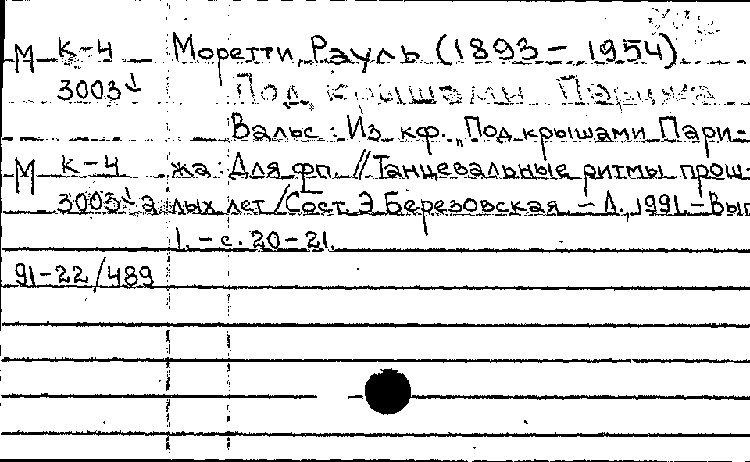 М К-4 Моретти, Рауль (1893 - 1954)
3003↓ Под крышами Парижа
Вальс: Из кф. „Под крышами Пари-
М К-4 жа: Для фп. // Танцевальные ритмы прош-
3003↓а лых лет / Сост. Э. Березовская. - Л., 1991. - Вып
1. - с. 20-21.
91-22/489